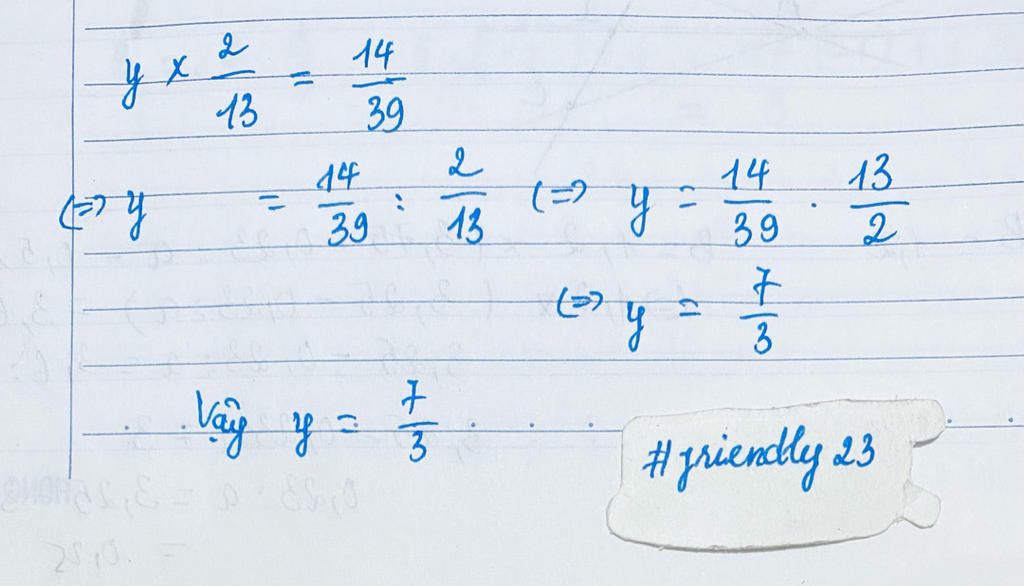 y × 2/13 = 14/39
(=) y = 14/39 : 2/13 (=) y = 14/39 . 13/2
(=) y = 7/3
Vậy y = 7/3
#friendly 23